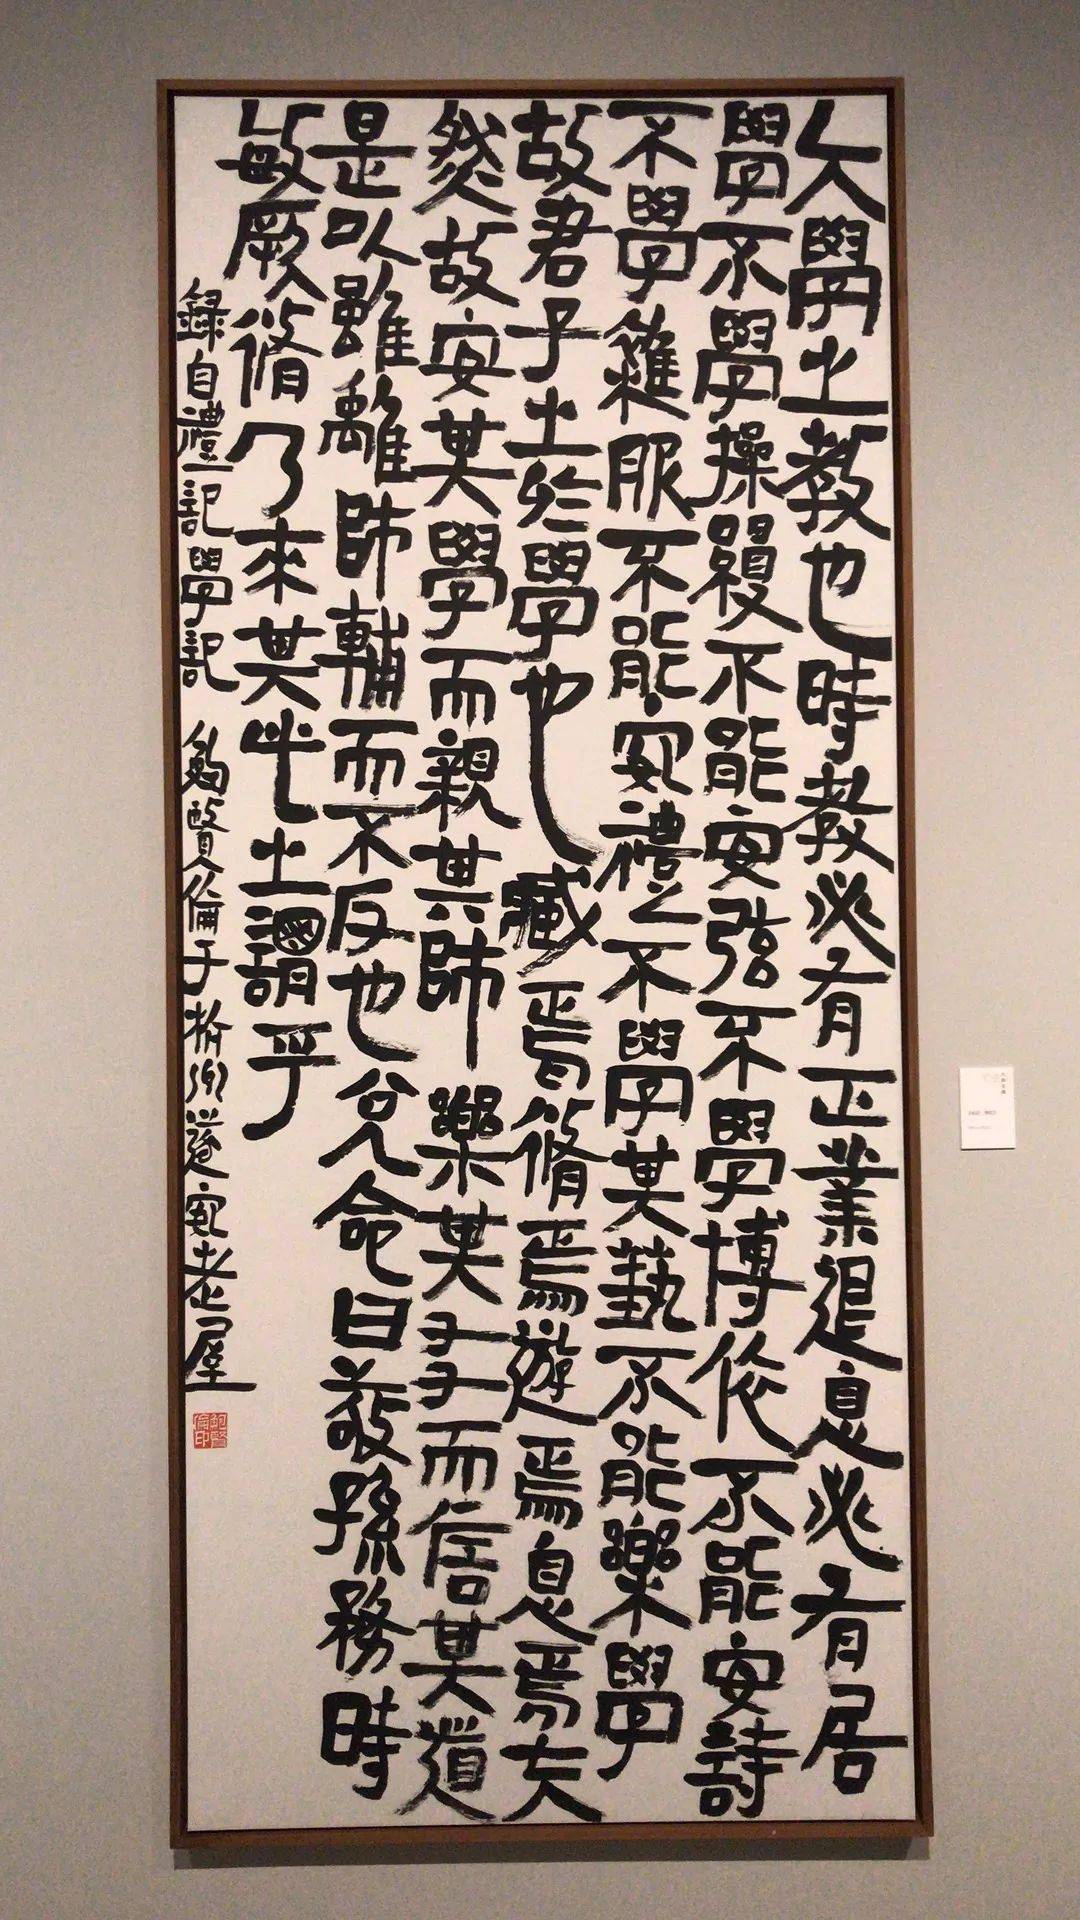 大學之教也時教必有正業退息必有居
學不學操縵不能安弦不學博依不能安詩
不學雜服不能安禮之不學其藝不能樂學
故君子之於學也臧焉脩焉遊焉息焉夫
然故安其學而親其師樂其友而信其道
是以雖離師輔而不反也兌命曰敬孫務時
敏厥脩乃來其此之謂乎
錄自禮記學記 鮑賢倫于杭州遂寬老屋
鮑賢倫印